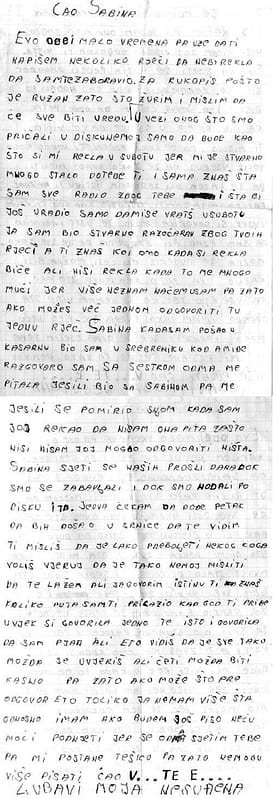 ĆAO SABINA
EVO MALO VREMENA PA UZE DATI
NAPIŠEM NEKOLIKO RJEČI DA NEBI REKLA
DA SAM TE ZABORAVIO. ZA RUKOPIS POŠTO
JE RUŽAN ZATO ŠTO ŽURIM I MISLIM DA
ĆE SVE BITI UREDU. U VEZI ONOG ŠTO SMO
PRIČALI U DISKU NEMOJ SAMO DA BUDE KAO
ŠTO SI MI REKLA U SUBOTU JER MI JE STVARNO
MNOGO STALO DO TEBE TI I SAMA ZNAŠ ŠTA
SAM SVE RADIO ZBOG TEBE I ŠTA BI
JOŠ URADIO SAMO DA MI SE VRATIŠ U SUBOTU
JA SAM BIO STVARNO RAZOČARAN ZBOG TVOJI
RJEČI A TI ZNAŠ KOJ ONO KADA SI REKLA
BIĆE ALI NISI REKLA KADA TO ME MNOGO
MUČI JER VIŠE NEZNAM NA ČEMU SAM PA ZATO
AKO MOŽEŠ VEĆ JEDNOM ODGOVORITI TU
JEDNU RJEČ. SABINA KADA SAM POŠAO U
KASARNU BIO SAM U SREBRENIKU KOD AMIDE
RAZGOVARO SAM SA SESTROM ODMA ME
PITALA JESILI BIO SA SABINOM PA ME
JESILI SE POMIRIO SNJOM KADA SAM
JOJ REKAO DA NISAM ONA PITA ZAŠTO
NISI NISAM JOJ MOGAO ODGOVORITI NIŠTA.
SABINA SJETI SE NAŠIH PROŠLI DANA DOK
SMO SE ZABAVLAZI I DOK SMO HODALI PO
DISKU ITD. JEDVA ČEKAM DA DOĐE PETAK
DA BIH DOŠAO U GRNICE DA TE VIDIM
TI MISLIŠ DA JE LAKO PREBOLJETI NEKOG KOGA
VOLIŠ VJERUJ DA JE TAKO NEMOJ MISLITI
DA TE LAŽEM ALI JA GOVORIM ISTINU TI ZNAŠ
KOLIKO PUTA SAM TI PRILAZIO KAD GOD TI PRIĐE
UVJEK SI GOVORILA JEDNO TE ISTO I GOVORILA
DA SAM PJAN ALI ETO VIDIŠ DA JE SVE TAKO
MOŽDA SE UVJERIŠ ALI ĆE TI MOŽDA BITI
KASNO PA ZATO AKO MOŽE ŠTO PRE
ODGOVOR ETO TOLIKO JA NEMAM VIŠE ŠTA
ODNOSNO IMAM AKO BUDEM JOŠ PISO NEĆU
MOĆI PODNJETI JER SE SJETIM TEBE
PA MI POSTANE TEŠKO PA ZATO NEMOGU
VIŠE PISATI ĆAO V...TE E....
LJUBAVI MOJA NESUĐENA